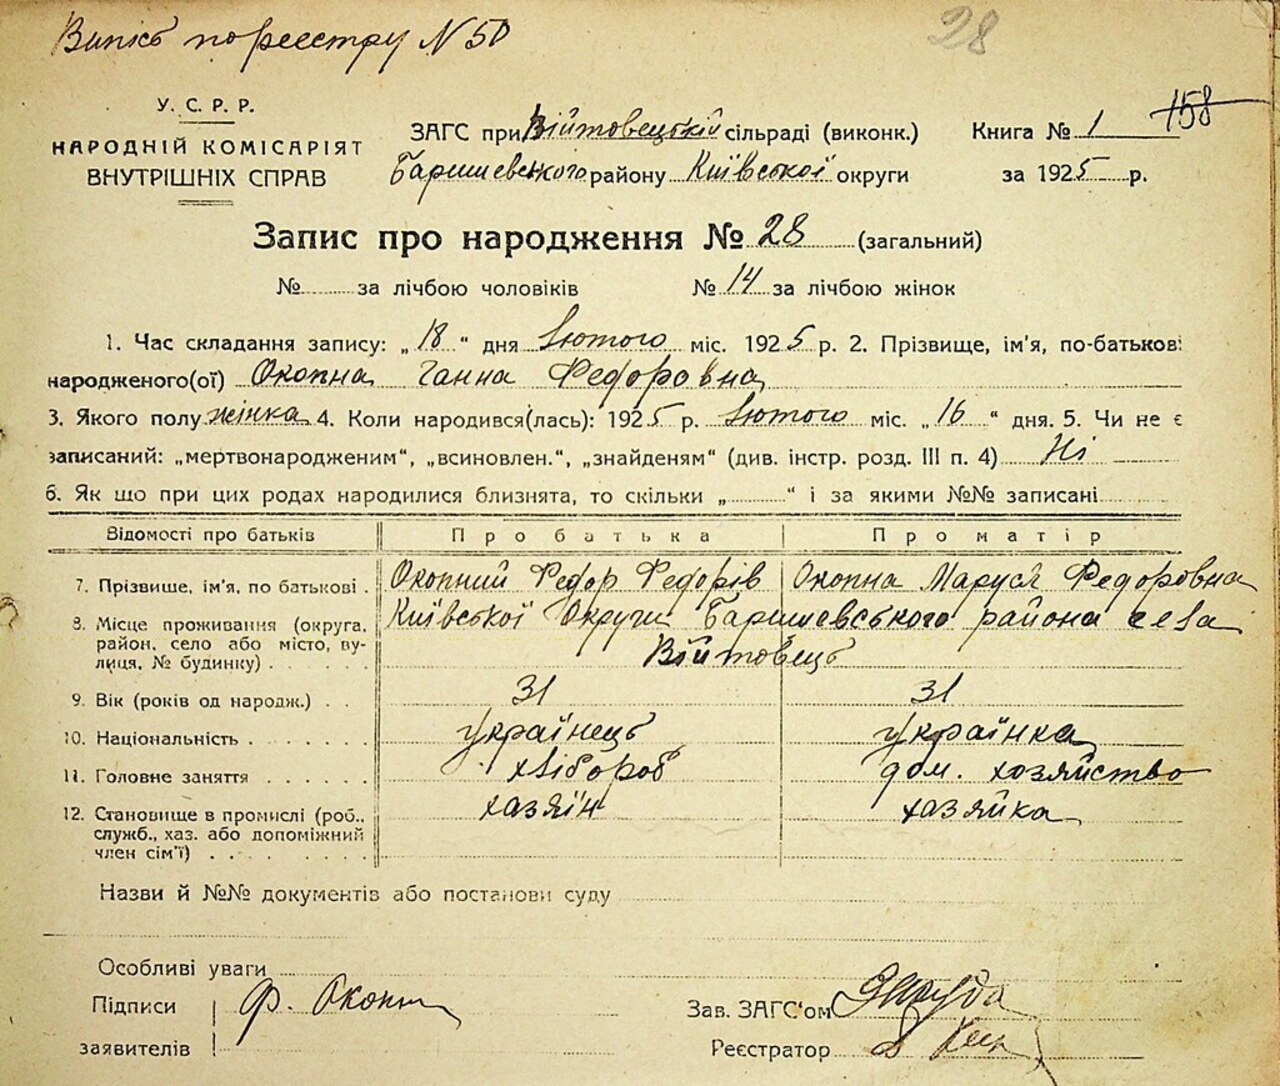 Випісь по реєстру N 50
28
У. С. Р. Р.
НАРОДНІЙ КОМІСАРІЯТ
ВНУТРІШНІХ СПРАВ
ЗАГС при Війтовецькій сільраді (виконк.)
Баришевського району Київської округи
Книга № 1
158
за 1925 р.
Запис про народження № 28 (загальний)
№ за лічбою чоловіків № 14 за лічбою жінок
1. Час складання запису: „18“ дня Лютого міс. 1925 р. 2. Прізвище, ім'я, по-батькові
народженого(ої) Окопна Ганна Федоровна
3. Якого полу жінка 4. Коли народився(лась): 1925 р. Лютого міс. „16“ дня. 5. Чи не є
записаний: „мертвонародженим“, „всиновлен.“, „знайденям“ (див. інстр. розд. III п. 4) Ні
6. Як що при цих родах народилися близнята, то скільки „ “ і за якими №№ записані
Відомості про батьків Про батька Про матір
7. Прізвище, ім'я, по батькові Окопний Федор Федорів Окопна Маруся Федоровна
8. Місце проживання (округа, Київської Округи Баришевського района села
район, село або місто, ву- Війтовець
лиця, № будинку)
9. Вік (років од народж.) 31 31
10. Національність українець українка
11. Головне заняття хлібороб дом. хозяйство
12. Становище в промислі (роб., хазяїн хазяйка
служб., хаз. або допоміжний
член сім'ї)
Назви й №№ документів або постанови суду
Особливі уваги
Підписи Ф. Окопн
заявителів
Зав. ЗАГС'ом
Реєстратор